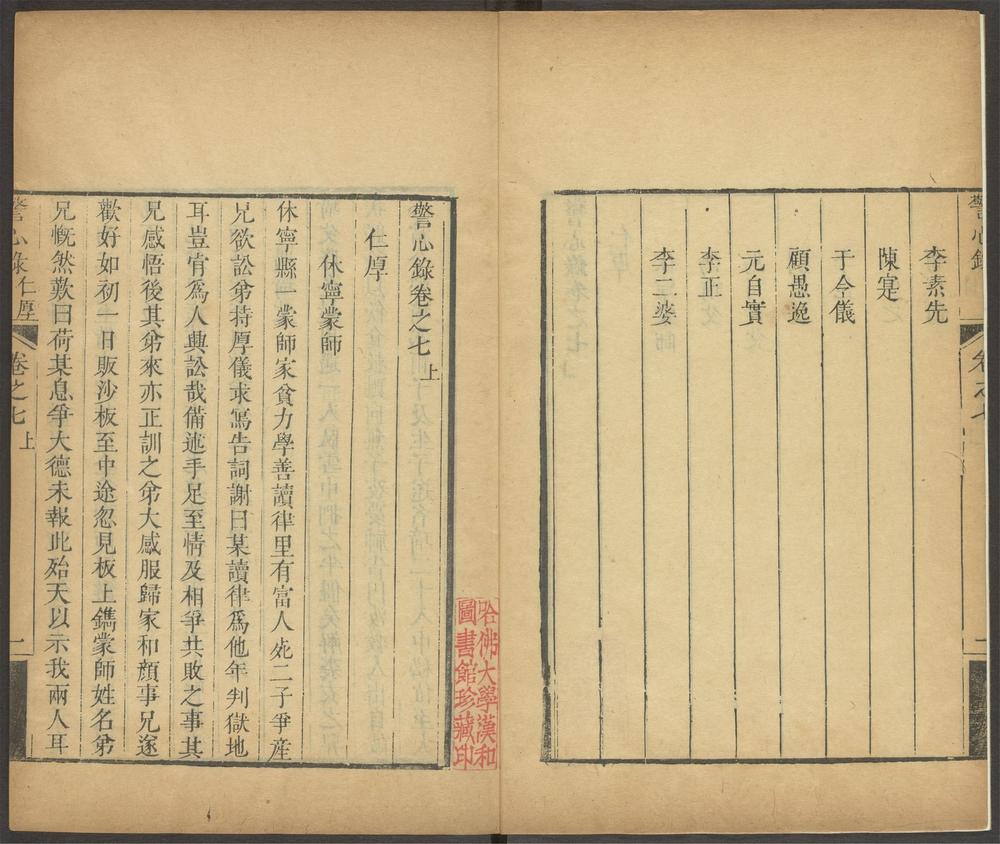 警心錄
卷之七
李素先
陳寔
于令儀
顧愚逸
元自實
李正
李二婆
哈佛大學漢和
圖書館珍藏印
警心錄卷之七上
仁厚
休寧蒙師
休寧縣一蒙師家貧力學善讀律里有富人死二子爭産
兄欲訟弟持厚儀求寫告詞謝曰某讀律爲他年判獄地
耳豈肯爲人興訟哉備述手足至情及相爭共敗之事其
兄感悟後其弟來亦正訓之弟大感服歸家和顔事兄遂
歡好如初一日販沙板至中途忽見板上鐫蒙師姓名弟
兄慨然歎曰荷某息爭大德未報此殆天以示我兩人耳
警心錄仁厚
卷之七上
一